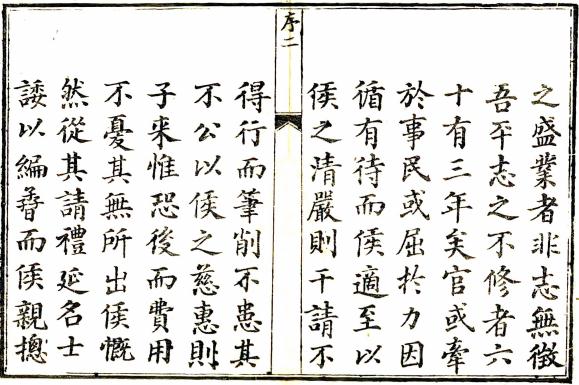 之盛業者非志無徵
吾平志之不修者六
十有三年矣官或牽
於事民或屈於力因
循有待而侯適至以
侯之清嚴則干請不
序二
得行而筆削不患其
不公以侯之慈惠則
子来惟恐後而費用
不憂其無所出侯慨
然從其請禮延名士
諉以編摩而侯親摠